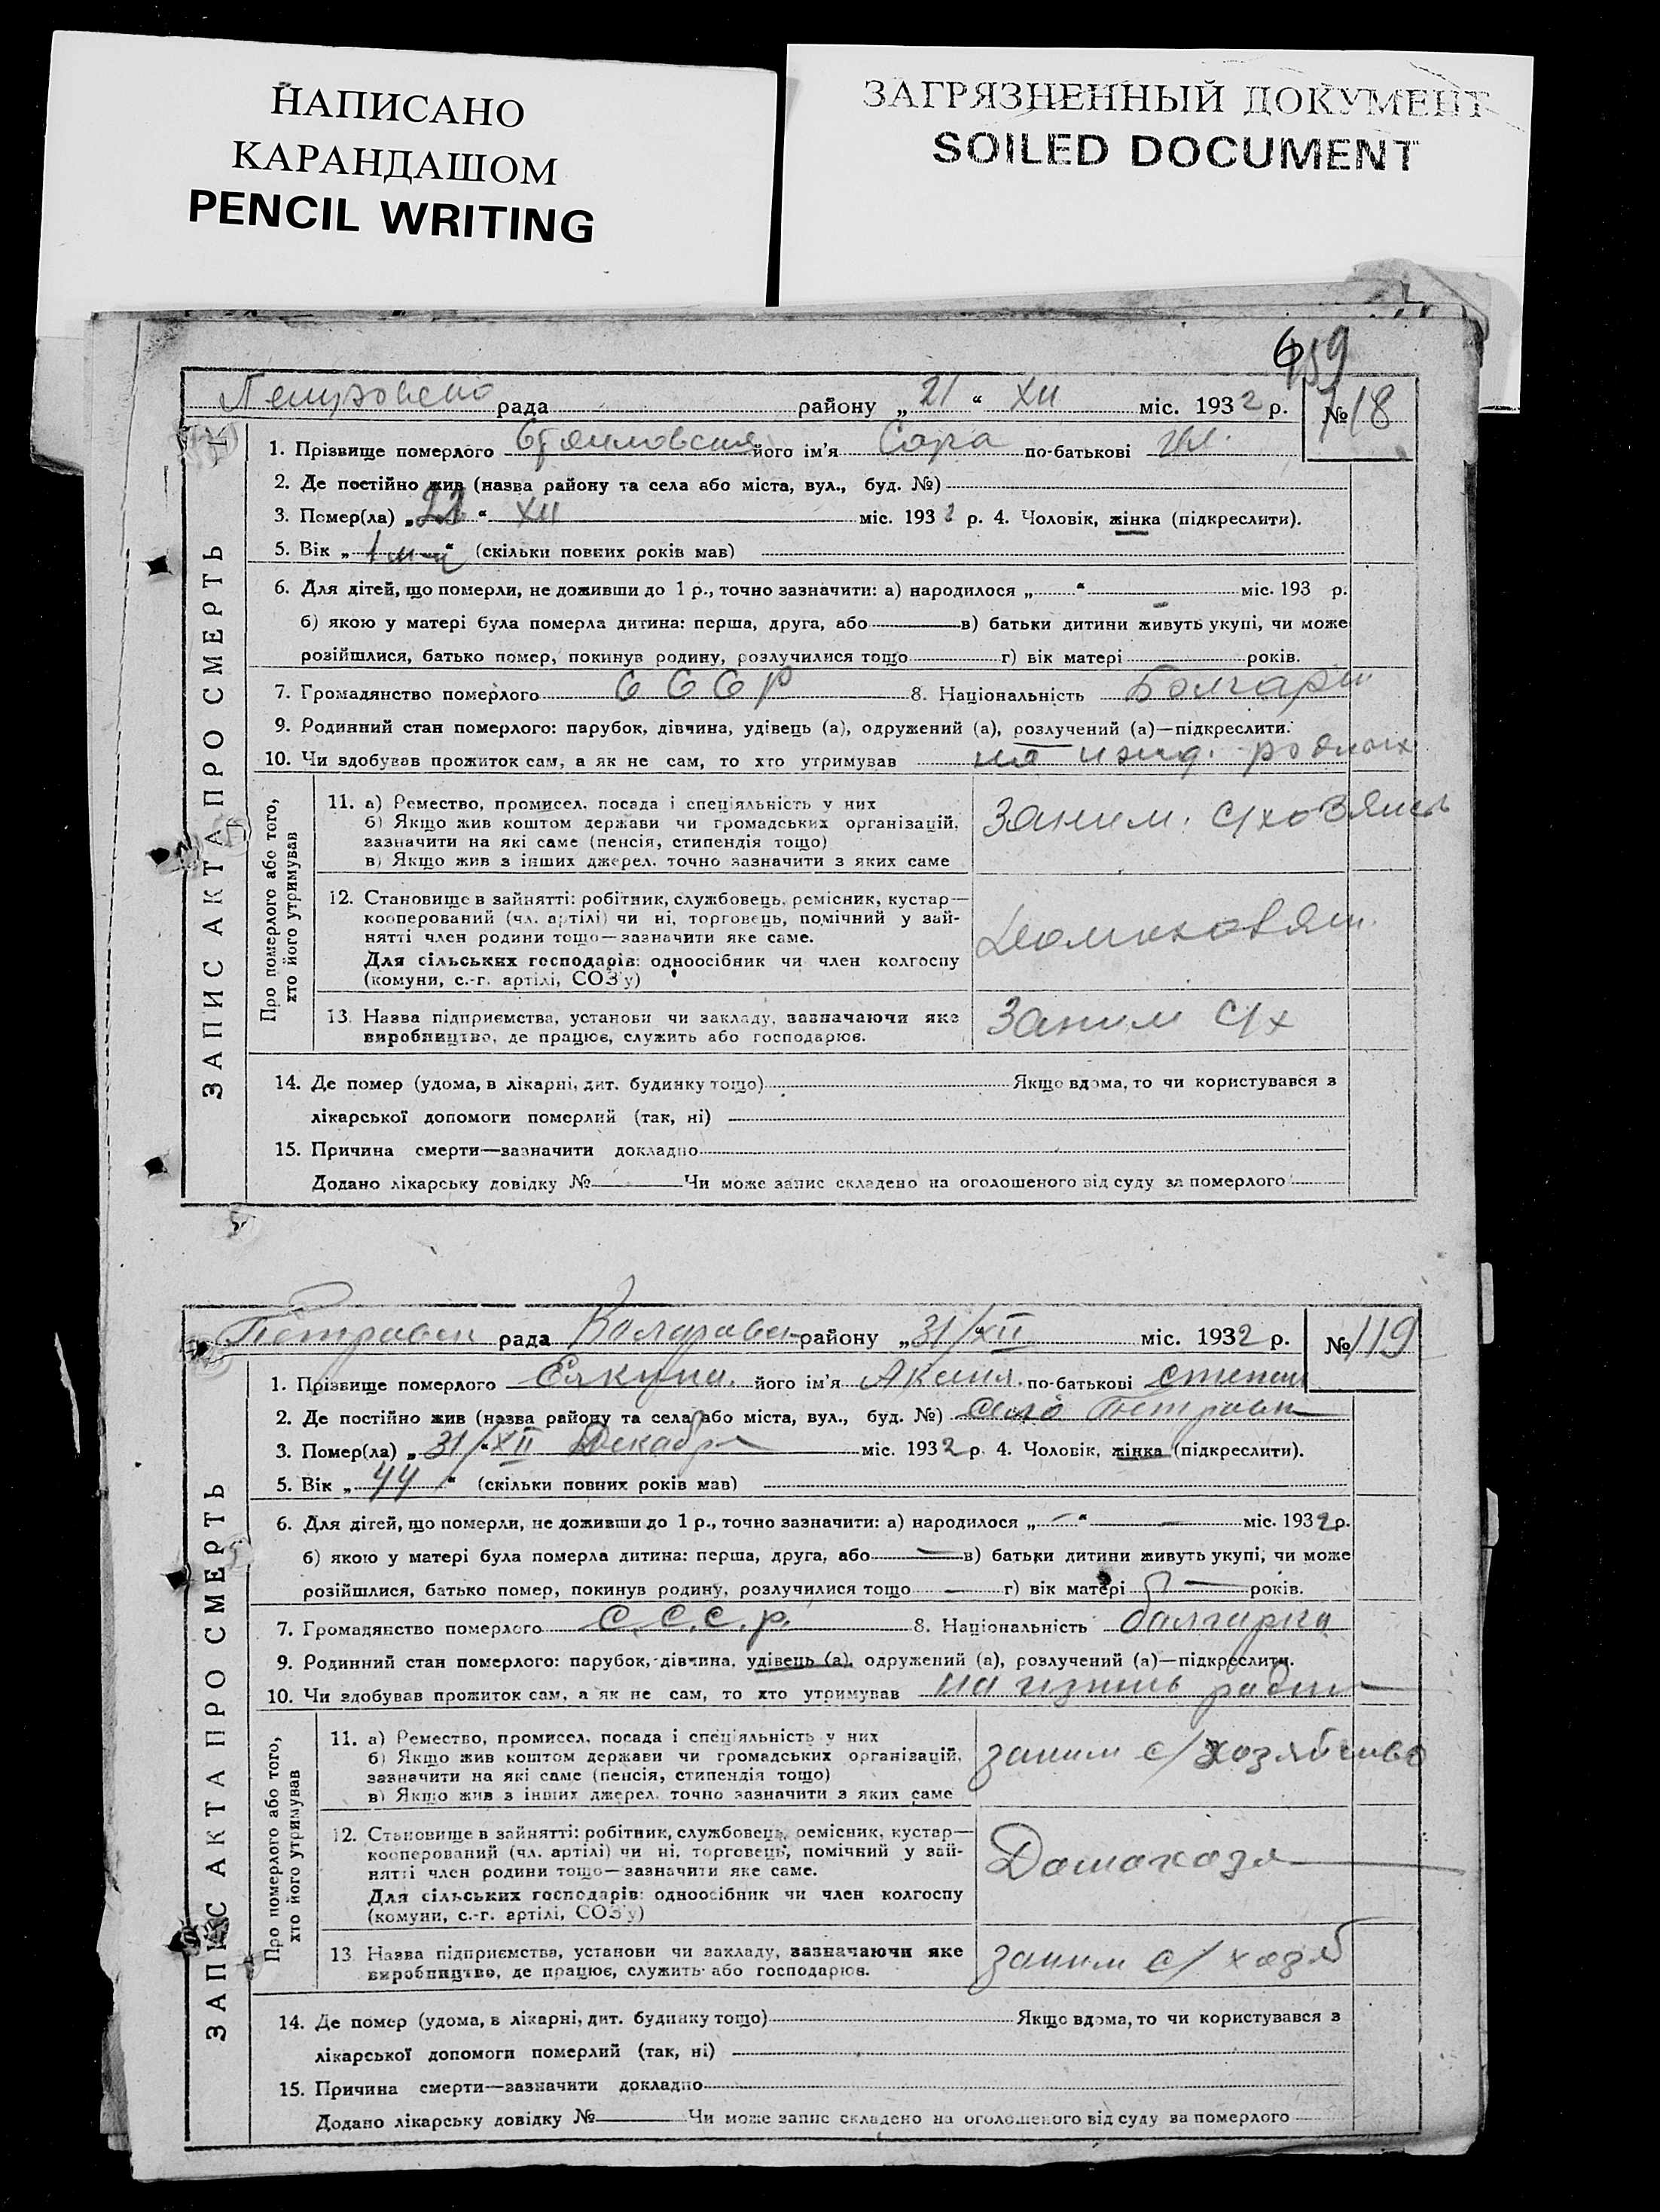 НАПИСАНО
КАРАНДАШОМ
PENCIL WRITING
ЗАГРЯЗНЕННЫЙ ДОКУМЕНТ
SOILED DOCUMENT
рада району „21“ XII міс. 1932 р. № 118
1. Прізвище померлого його ім'я Сора по-батькові
2. Де постійно жив (назва району та села або міста, вул., буд. №)
3. Помер(ла) „ “ XII міс. 1932 р. 4. Чоловік, жінка (підкреслити).
5. Вік „ “ (скільки повних років мав)
6. Для дітей, що померли, не доживши до 1 р., точно зазначити: а) народилося „ “ міс. 193 р.
б) якою у матері була померла дитина: перша, друга, або в) батьки дитини живуть укупі, чи може
розійшлися, батько помер, покинув родину, розлучилися тощо г) вік матері років.
7. Громадянство померлого СССР 8. Національність Болгари
9. Родинний стан померлого: парубок, дівчина, удівець (а), одружений (а), розлучений (а)—підкреслити.
10. Чи здобував прожиток сам, а як не сам, то хто утримував на изжд. родных
ЗАПИС АКТА ПРО СМЕРТЬ
Про померлого або того,
хто його утримував
11. а) Ремество, промисел, посада і спеціяльність у них
б) Якщо жив коштом держави чи громадських організацій,
зазначити на які саме (пенсія, стипендія тощо)
в) Якщо жив з інших джерел, точно зазначити з яких саме
Заним. с/хозяись
12. Становище в зайнятті: робітник, службовець, ремісник, кустар—
кооперований (чл. артілі) чи ні, торговець, помічний у зай-
нятті член родини тощо—зазначити яке саме.
Для сільських господарів: одноосібник чи член колгоспу
(комуни, с.-г. артілі, СОЗ'у)
Домохозяи.
13. Назва підприємства, установи чи закладу, зазначаючи яке
виробництво, де працює, служить або господарює.
Заним с/х
14. Де помер (удома, в лікарні, дит. будинку тощо) Якщо вдома, то чи користувався з
лікарської допомоги померлий (так, ні)
15. Причина смерти—зазначити докладно
Додано лікарську довідку № Чи може запис складено на оголошеного від суду за померлого
Петровск рада району „31/XII міс. 1932 р. № 119
1. Прізвище померлого його ім'я Аксиня. по-батькові степан
2. Де постійно жив (назва району та села або міста, вул., буд. №) село Петровк
3. Помер(ла) „31/“XII Декабря міс. 1932 р. 4. Чоловік, жінка (підкреслити).
5. Вік „44“ (скільки повних років мав)
6. Для дітей, що померли, не доживши до 1 р., точно зазначити: а) народилося „—“ — міс. 1932 р.
б) якою у матері була померла дитина: перша, друга, або — в) батьки дитини живуть укупі, чи може
розійшлися, батько помер, покинув родину, розлучилися тощо — г) вік матері — років.
7. Громадянство померлого С.С.С.р. 8. Національність болгарка
9. Родинний стан померлого: парубок, дівчина, удівець (а), одружений (а), розлучений (а)—підкреслити.
10. Чи здобував прожиток сам, а як не сам, то хто утримував на
ЗАПИС АКТА ПРО СМЕРТЬ
Про померлого або того,
хто його утримував
11. а) Ремество, промисел, посада і спеціяльність у них
б) Якщо жив коштом держави чи громадських організацій,
зазначити на які саме (пенсія, стипендія тощо)
в) Якщо жив з інших джерел, точно зазначити з яких саме
заним с/хозяйство
12. Становище в зайнятті: робітник, службовець, ремісник, кустар—
кооперований (чл. артілі) чи ні, торговець, помічний у зай-
нятті член родини тощо—зазначити яке саме.
Для сільських господарів: одноосібник чи член колгоспу
(комуни, с.-г. артілі, СОЗ'у)
Домохозя
13. Назва підприємства, установи чи закладу, зазначаючи яке
виробництво, де працює, служить або господарює.
заним с/хозяй
14. Де помер (удома, в лікарні, дит. будинку тощо) Якщо вдома, то чи користувався з
лікарської допомоги померлий (так, ні)
15. Причина смерти—зазначити докладно
Додано лікарську довідку № Чи може запис складено на оголошеного від суду за померлого